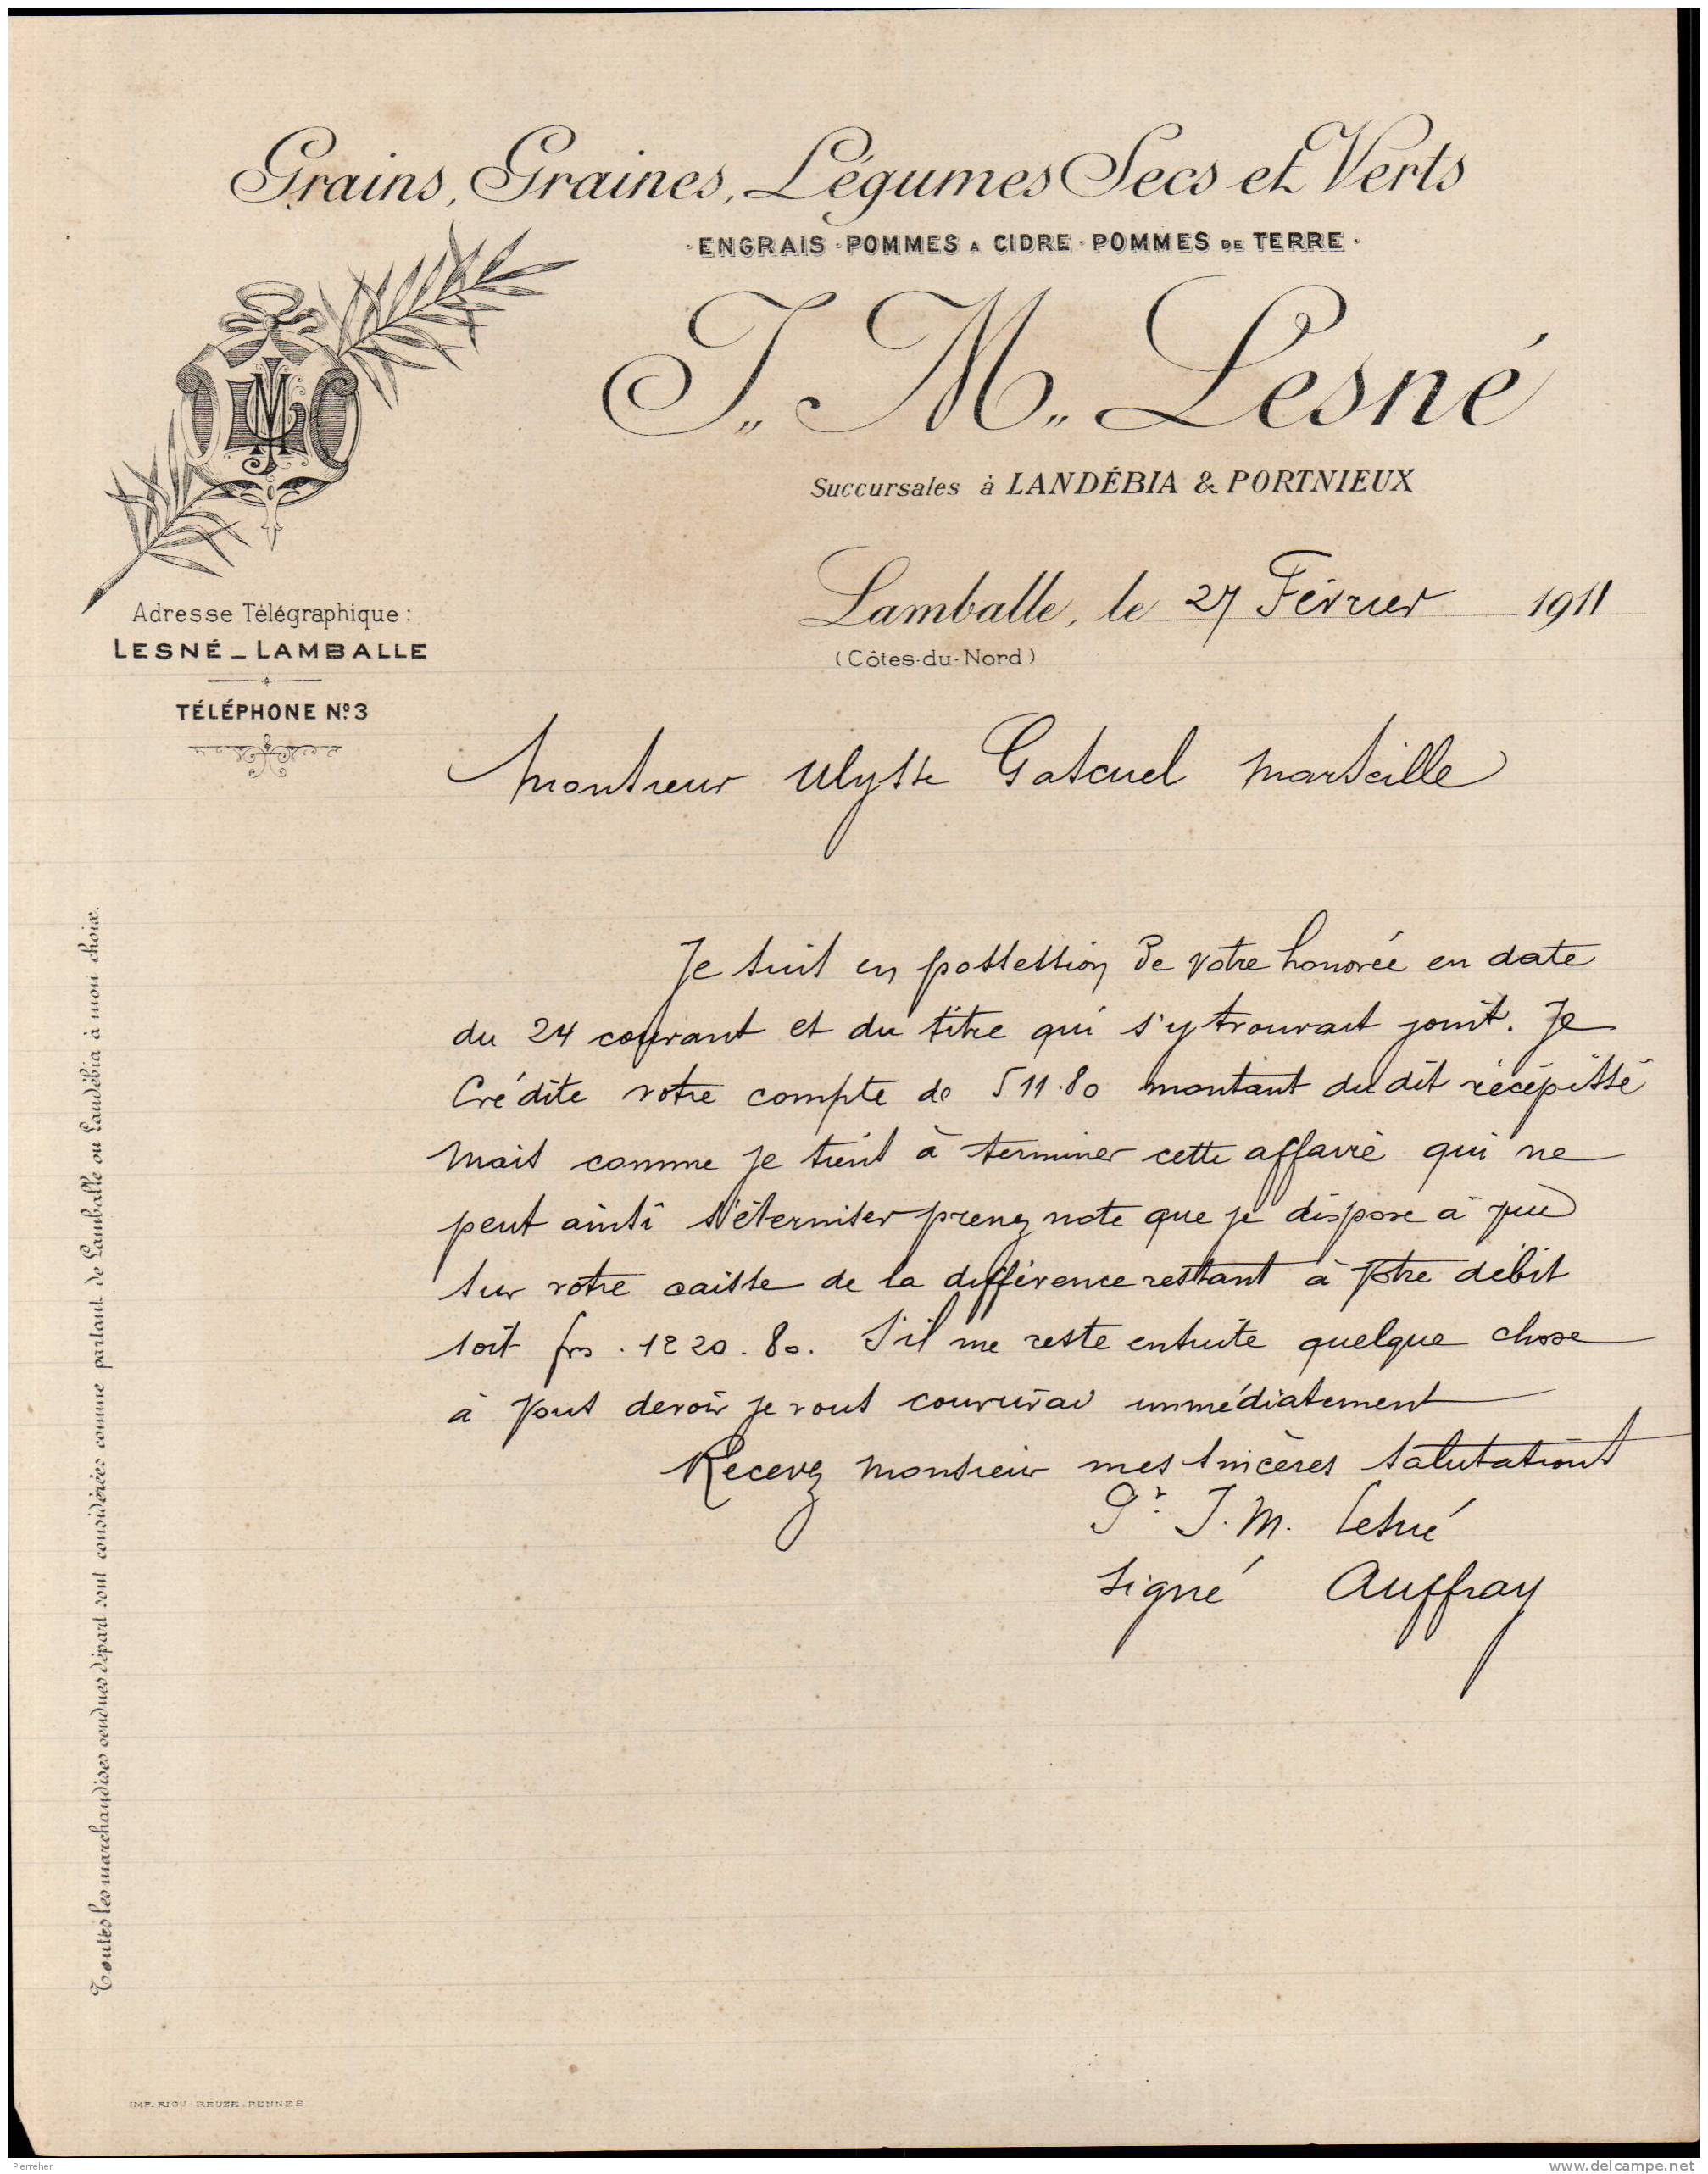 Grains, Graines, Légumes Secs et Verts
· ENGRAIS · POMMES A CIDRE · POMMES DE TERRE ·
J. M. Lesné
Succursales à LANDÉBIA & PORTNIEUX
Lamballe, le 27 Février 1911
(Côtes-du-Nord)
Adresse Télégraphique :
LESNÉ _ LAMBALLE
TÉLÉPHONE Nº 3
Monsieur Ulysse Gascuel Marseille
Je suis en possession de votre honorée en date
du 24 courant et du titre qui s'y trouvait joint. Je
Crédite votre compte de 511.80 montant du dit récépissé
Mais comme je tiens à terminer cette affaire qui ne
peut ainsi s'éterniser prenez note que je dispose à vue
sur votre caisse de la différence restant à votre débit
soit frs. 1220.80. S'il me reste ensuite quelque chose
à vous devoir je vous couvrirai immédiatement
Recevez Monsieur mes sincères salutations
Pr J. M. Lesné
Signé Auffray
Toutes les marchandises vendues départ sont considérées comme partant de Lamballe ou Landébia à mon choix.
IMP. RIOU-REUZE. RENNES
Pierreher
www.delcampe.net